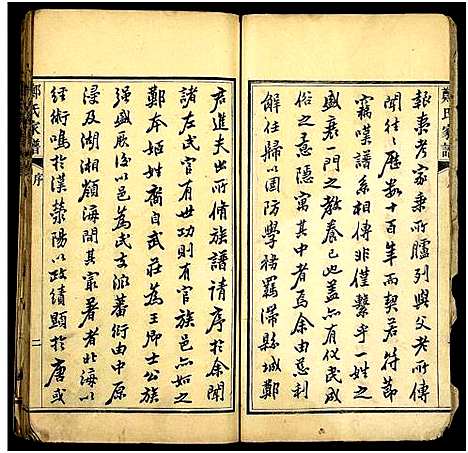 鄭氏家譜
報秉考家乘所臚列與父老所傳
聞往往歷數十百年而契若符節
竊嘆譜系相傳非僅繫乎一姓之
盛衰一門之教養已也蓋亦有化民成
俗之意隱寓其中者焉余由慈利
任歸以團防學務羈滯縣城鄭
君進夫出所修族譜請序於余聞
諸左氏官有世功則有官族邑亦如之
鄭本姬姓裔自武莊為王卿士公族
強盛厥後以邑為氏支派蕃衍由中原
浸及湖湘嶺海間其最著者北海以
經術鳴於漢滎陽以政績顯於唐或
鄭氏家譜
序
二